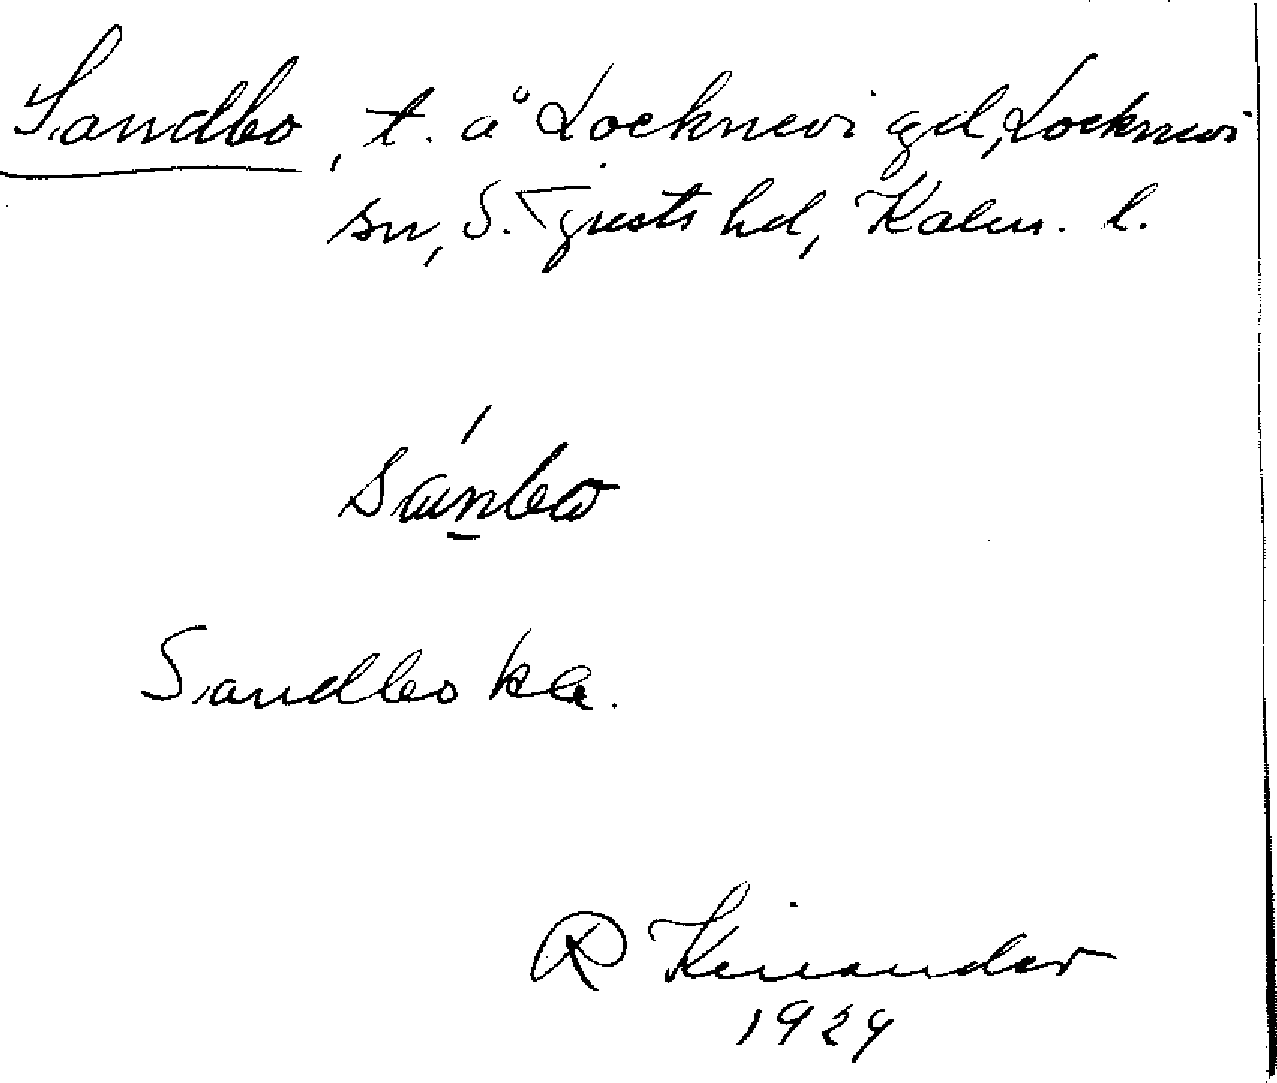 Sandbo, t. å Locknevi gd, Locknevi
sn, S. Tjusts hd, Kalm. l.
Sandbo ka.
R Kinander
1929